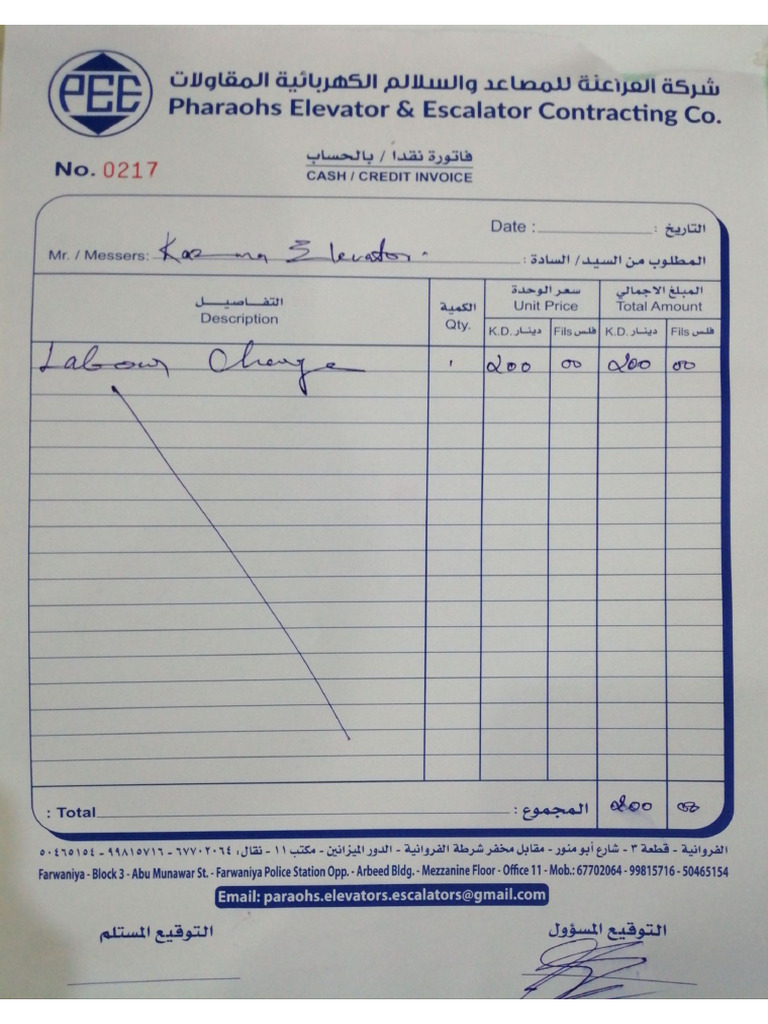 PEE
شركة الفراعنة للمصاعد والسلالم الكهربائية المقاولات
Pharaohs Elevator & Escalator Contracting Co.
فاتورة نقداً / بالحساب
No. 0217
CASH / CREDIT INVOICE
Date : التاريخ :
Mr. / Messers: Elevator المطلوب من السيد/ السادة :
التفـاصيــل الكمية سعر الوحدة المبلغ الاجمالي
Description Qty. Unit Price Total Amount
K.D. دينـار Fils فلس K.D. دينـار Fils فلس
Labour Charge 1 200 00 200 00
: Total المجموع : 200 00
الفروانية - قطعة ٣ - شارع أبو منور - مقابل مخفر شرطة الفروانية - الدور الميزانين - مكتب ١١ - نقال: ٦٧٧٠٢٠٦٤ - ٩٩٨١٥٧١٦ - ٥٠٤٦٥١٥٤
Farwaniya - Block 3 - Abu Munawar St. - Farwaniya Police Station Opp. - Arbeed Bldg. - Mezzanine Floor - Office 11 - Mob.: 67702064 - 99815716 - 50465154
Email: paraohs.elevators.escalators@gmail.com
التوقيع المستلم التوقيع المسؤول